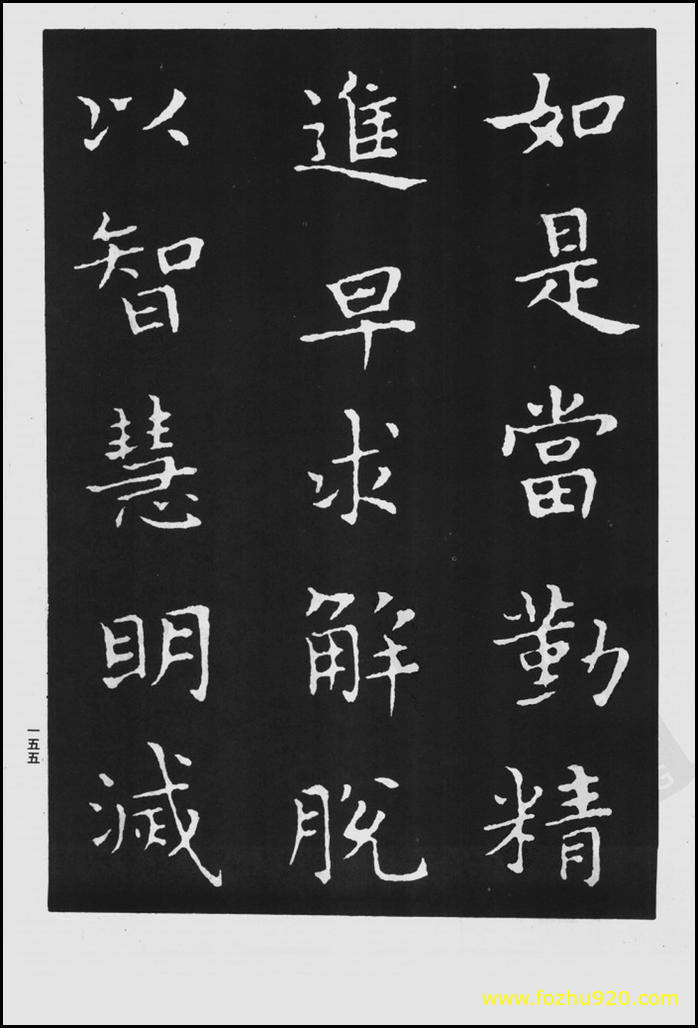 如是當勤精
進早求解脫
以智慧明滅
一五五
www.fozhu920.com